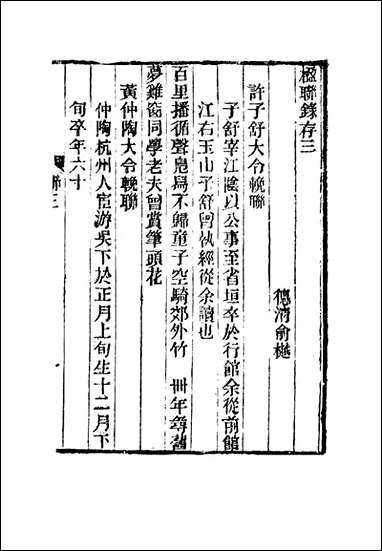 楹聯錄存三
德淸俞樾
許子舒大令輓聯
子舒宰江陰以公事至省垣卒於行館余從前館
江右玉山子舒曾執經從余讀也
百里播循聲鳧舄不歸童子空騎郊外竹　卌年尋舊
夢雞窗同學老夫曾賞筆頭花
黃仲陶大令輓聯
仲陶杭州人宦游吳下於正月上旬生十二月下
旬卒年六十
聯三